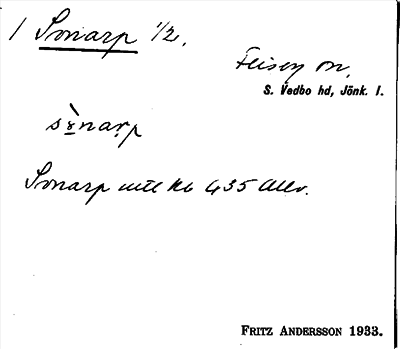 1 Sonarp 1/2.
Flisby sn.
S. Vedbo hd, Jönk. l.
Sonarp mtl Kb 435 Allv.
FRITZ ANDERSSON 1933.